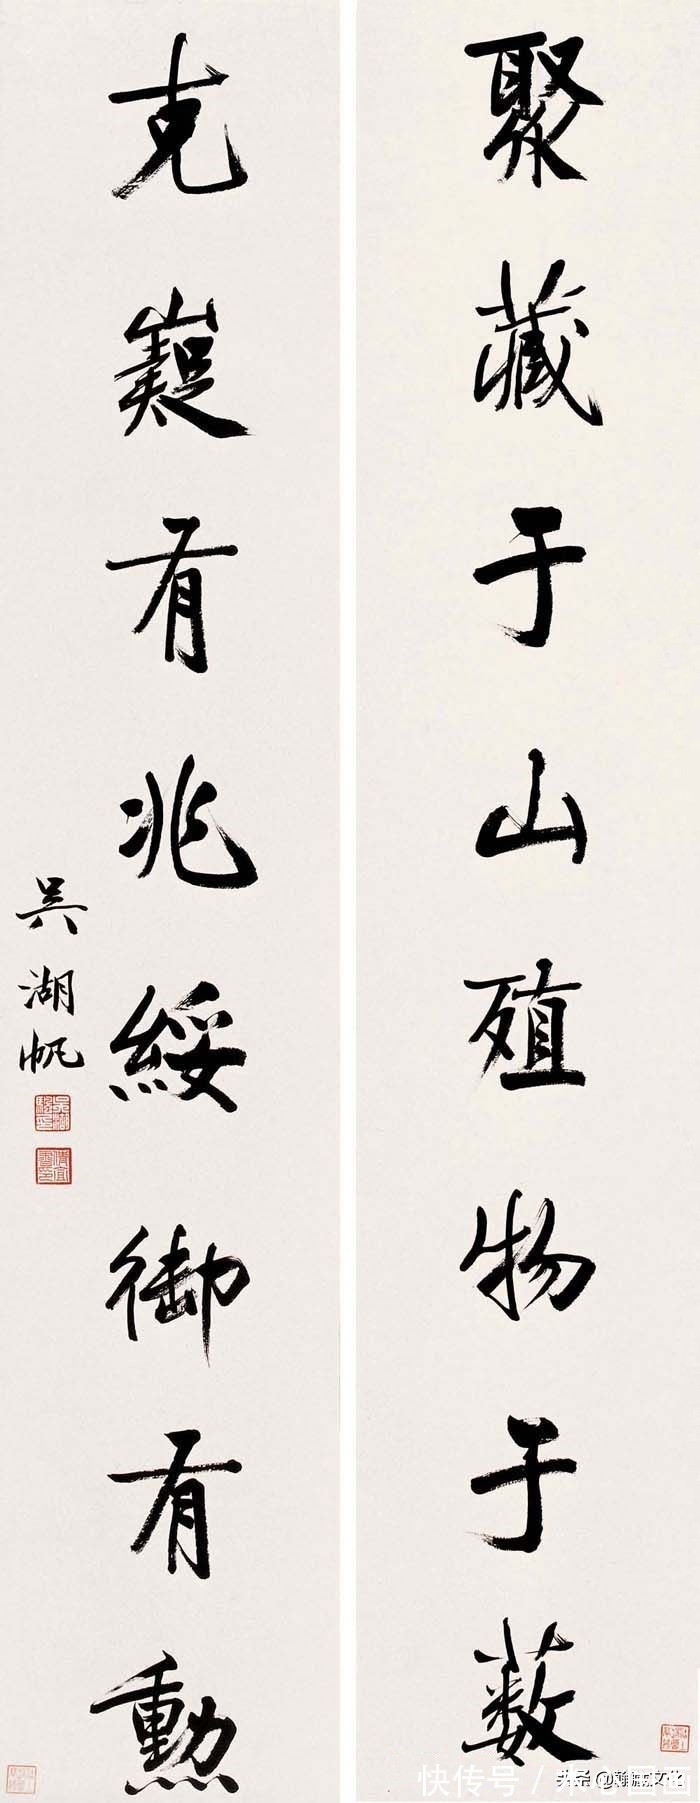 聚藏于山殖物于薮
克嶷有兆綏御有勳
吳湖帆
快传号